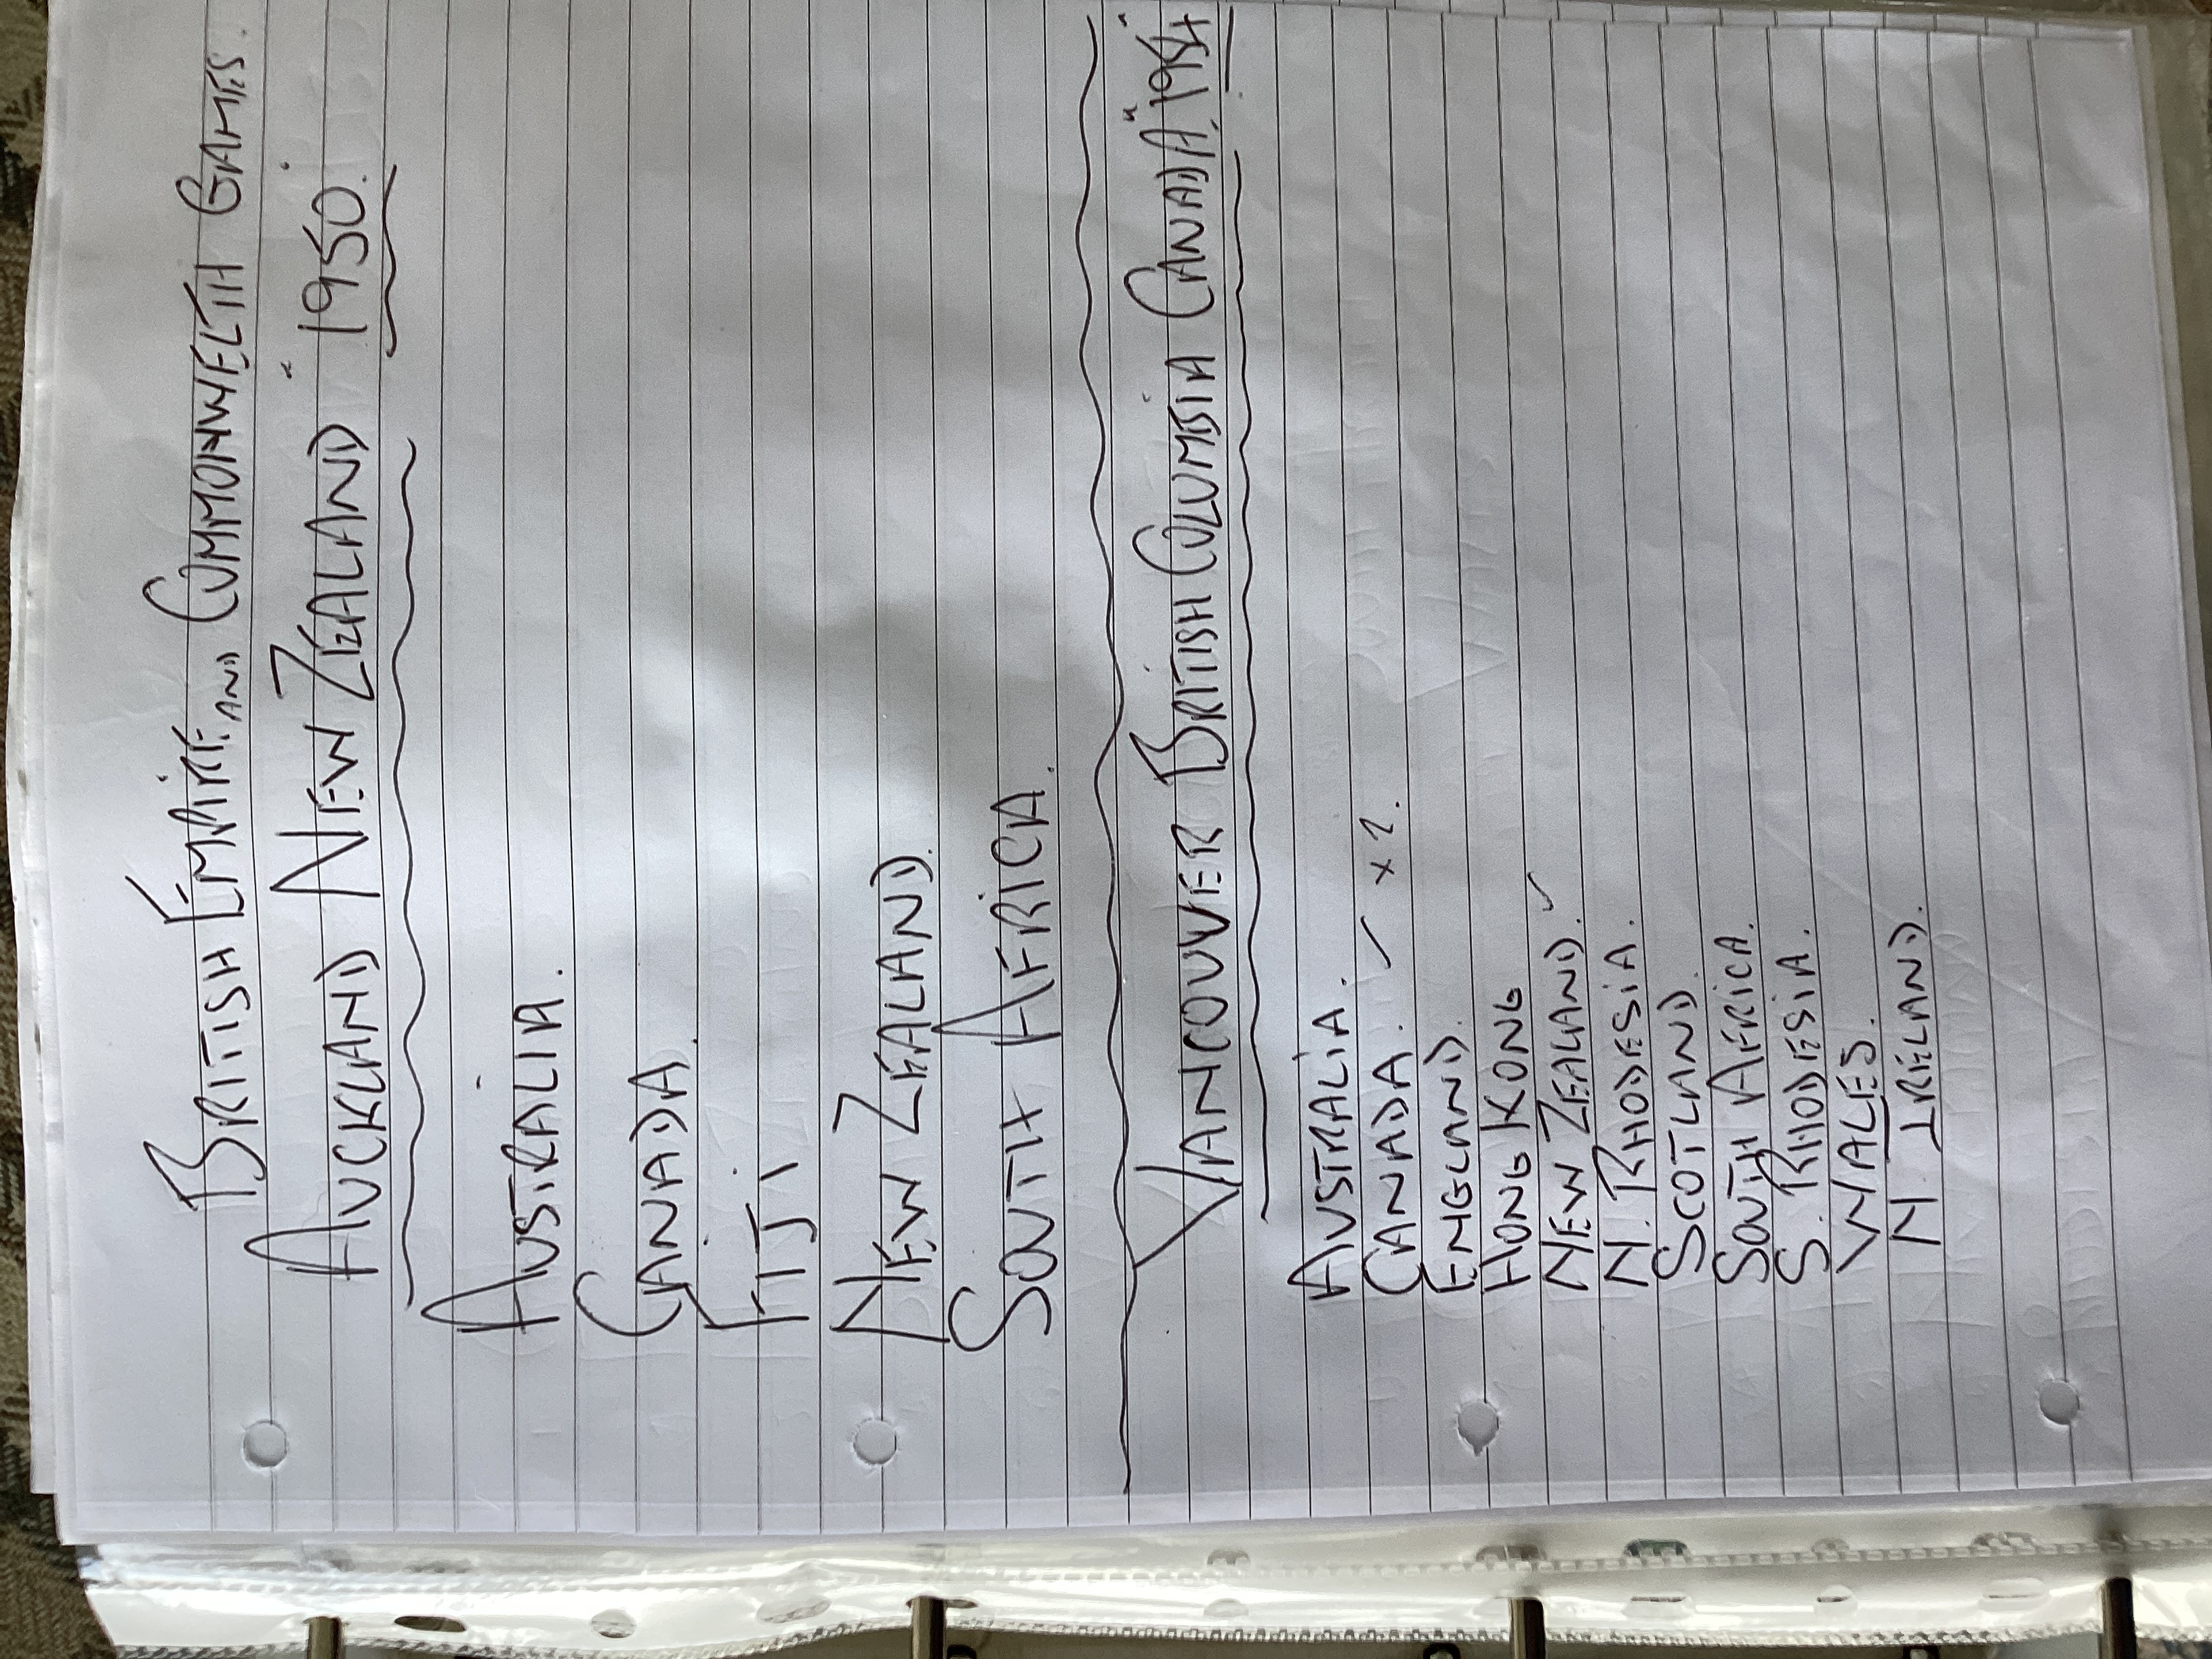 BRITISH EMPIRE AND COMMONWELTH GAMES.
AUCKLAND NEW ZEALAND 1950.
AUSTRALIA.
CANADA.
FIJI
NEW ZEALAND.
SOUTH AFRICA.
VANCOUVER BRITISH COLUMBIA CANADA. 1954
AUSTRALIA.
CANADA. ✓ x 2.
ENGLAND.
HONG KONG
NEW ZEALAND. ✓
N. RHODESIA.
SCOTLAND.
SOUTH AFRICA.
S. RHODESIA.
WALES.
N. IRELAND.